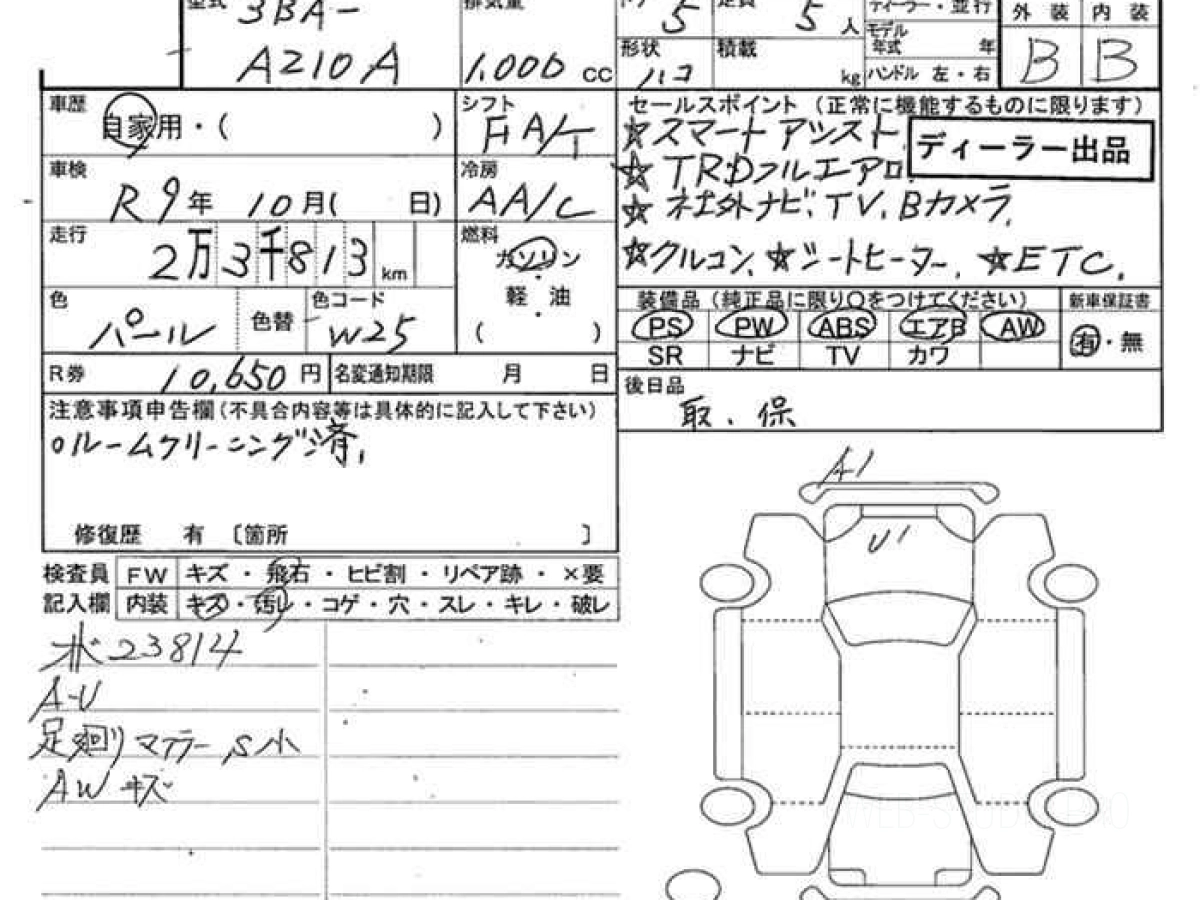 型式 3BA-
A210A
排気量
1.000 cc
ドア 5
定員 5 人
形状 ハコ
積載 kg
ディーラー・並行
モデル年式 年
ハンドル 左・右
外装 内装
B B
車歴 自家用・( )
シフト FA/T
車検 R9年 10月( 日)
冷房 AA/C
走行 2万3千813 km
燃料 ガソリン・軽油・( )
色 パール
色替
色コード W25
R券 10,650円
名変通知期限 月 日
セールスポイント(正常に機能するものに限ります)
☆スマートアシスト
ディーラー出品
☆TRDフルエアロ.
☆社外ナビ.TV.Bカメラ.
☆クルコン.☆シートヒーター.☆ETC.
装備品(純正品に限り○をつけてください)
新車保証書
PS PW ABS エアB AW
有・無
SR ナビ TV カワ
後日品
取.保
注意事項申告欄(不具合内容等は具体的に記入して下さい)
○ルームクリーニング済.
修復歴 有 〔箇所 〕
検査員記入欄
FW キズ・飛石・ヒビ割・リペア跡・×要
内装 キズ・汚レ・コゲ・穴・スレ・キレ・破レ
23814
A-U
足廻り マフラー S小
AW キズ
A1
U1